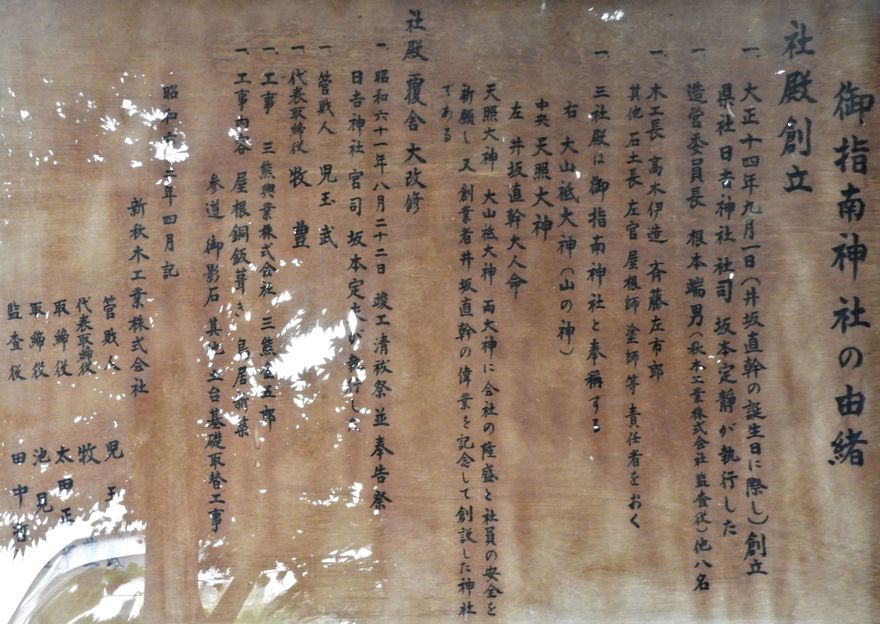 御指南神社の由緒
社殿創立
一、大正十四年九月一日(井坂直幹の誕生日に際し)創立
県社日吉神社社司 坂本定静が執行した
造営委員長 根本端男(秋木工業株式会社 監査役)他八名
一、木工長 高木伊造 斉藤左市郎
其他 石土長 左官 屋根師 塗師等 責任者をおく
一、三社殿は御指南神社と奉稱する
右 大山祗大神(山の神)
中央 天照大神
左 井坂直幹大人命
天照大神 大山祗大神 両大神に会社の隆盛と社員の安全を
祈願し 又 創業者井坂直幹の偉業を記念して創設した神社
である
社殿覆舎大改修
一、昭和六十一年八月二十二日 竣工清祓祭並奉告祭
日吉神社 宮司 坂本定 が執行した
一、管財人 児玉 武
一、代表取締役 牧 豊
一、工事 三熊興業株式会社 三熊金五郎
一、工事内容 屋根銅飯葺き 鳥居新築
参道 御影石 其他 土台基礎取替工事
昭和六十二年四月記
新秋木工業株式会社
管財人 児玉
代表取締役 牧
取締役 太田正
取締役 池見
監査役 田中